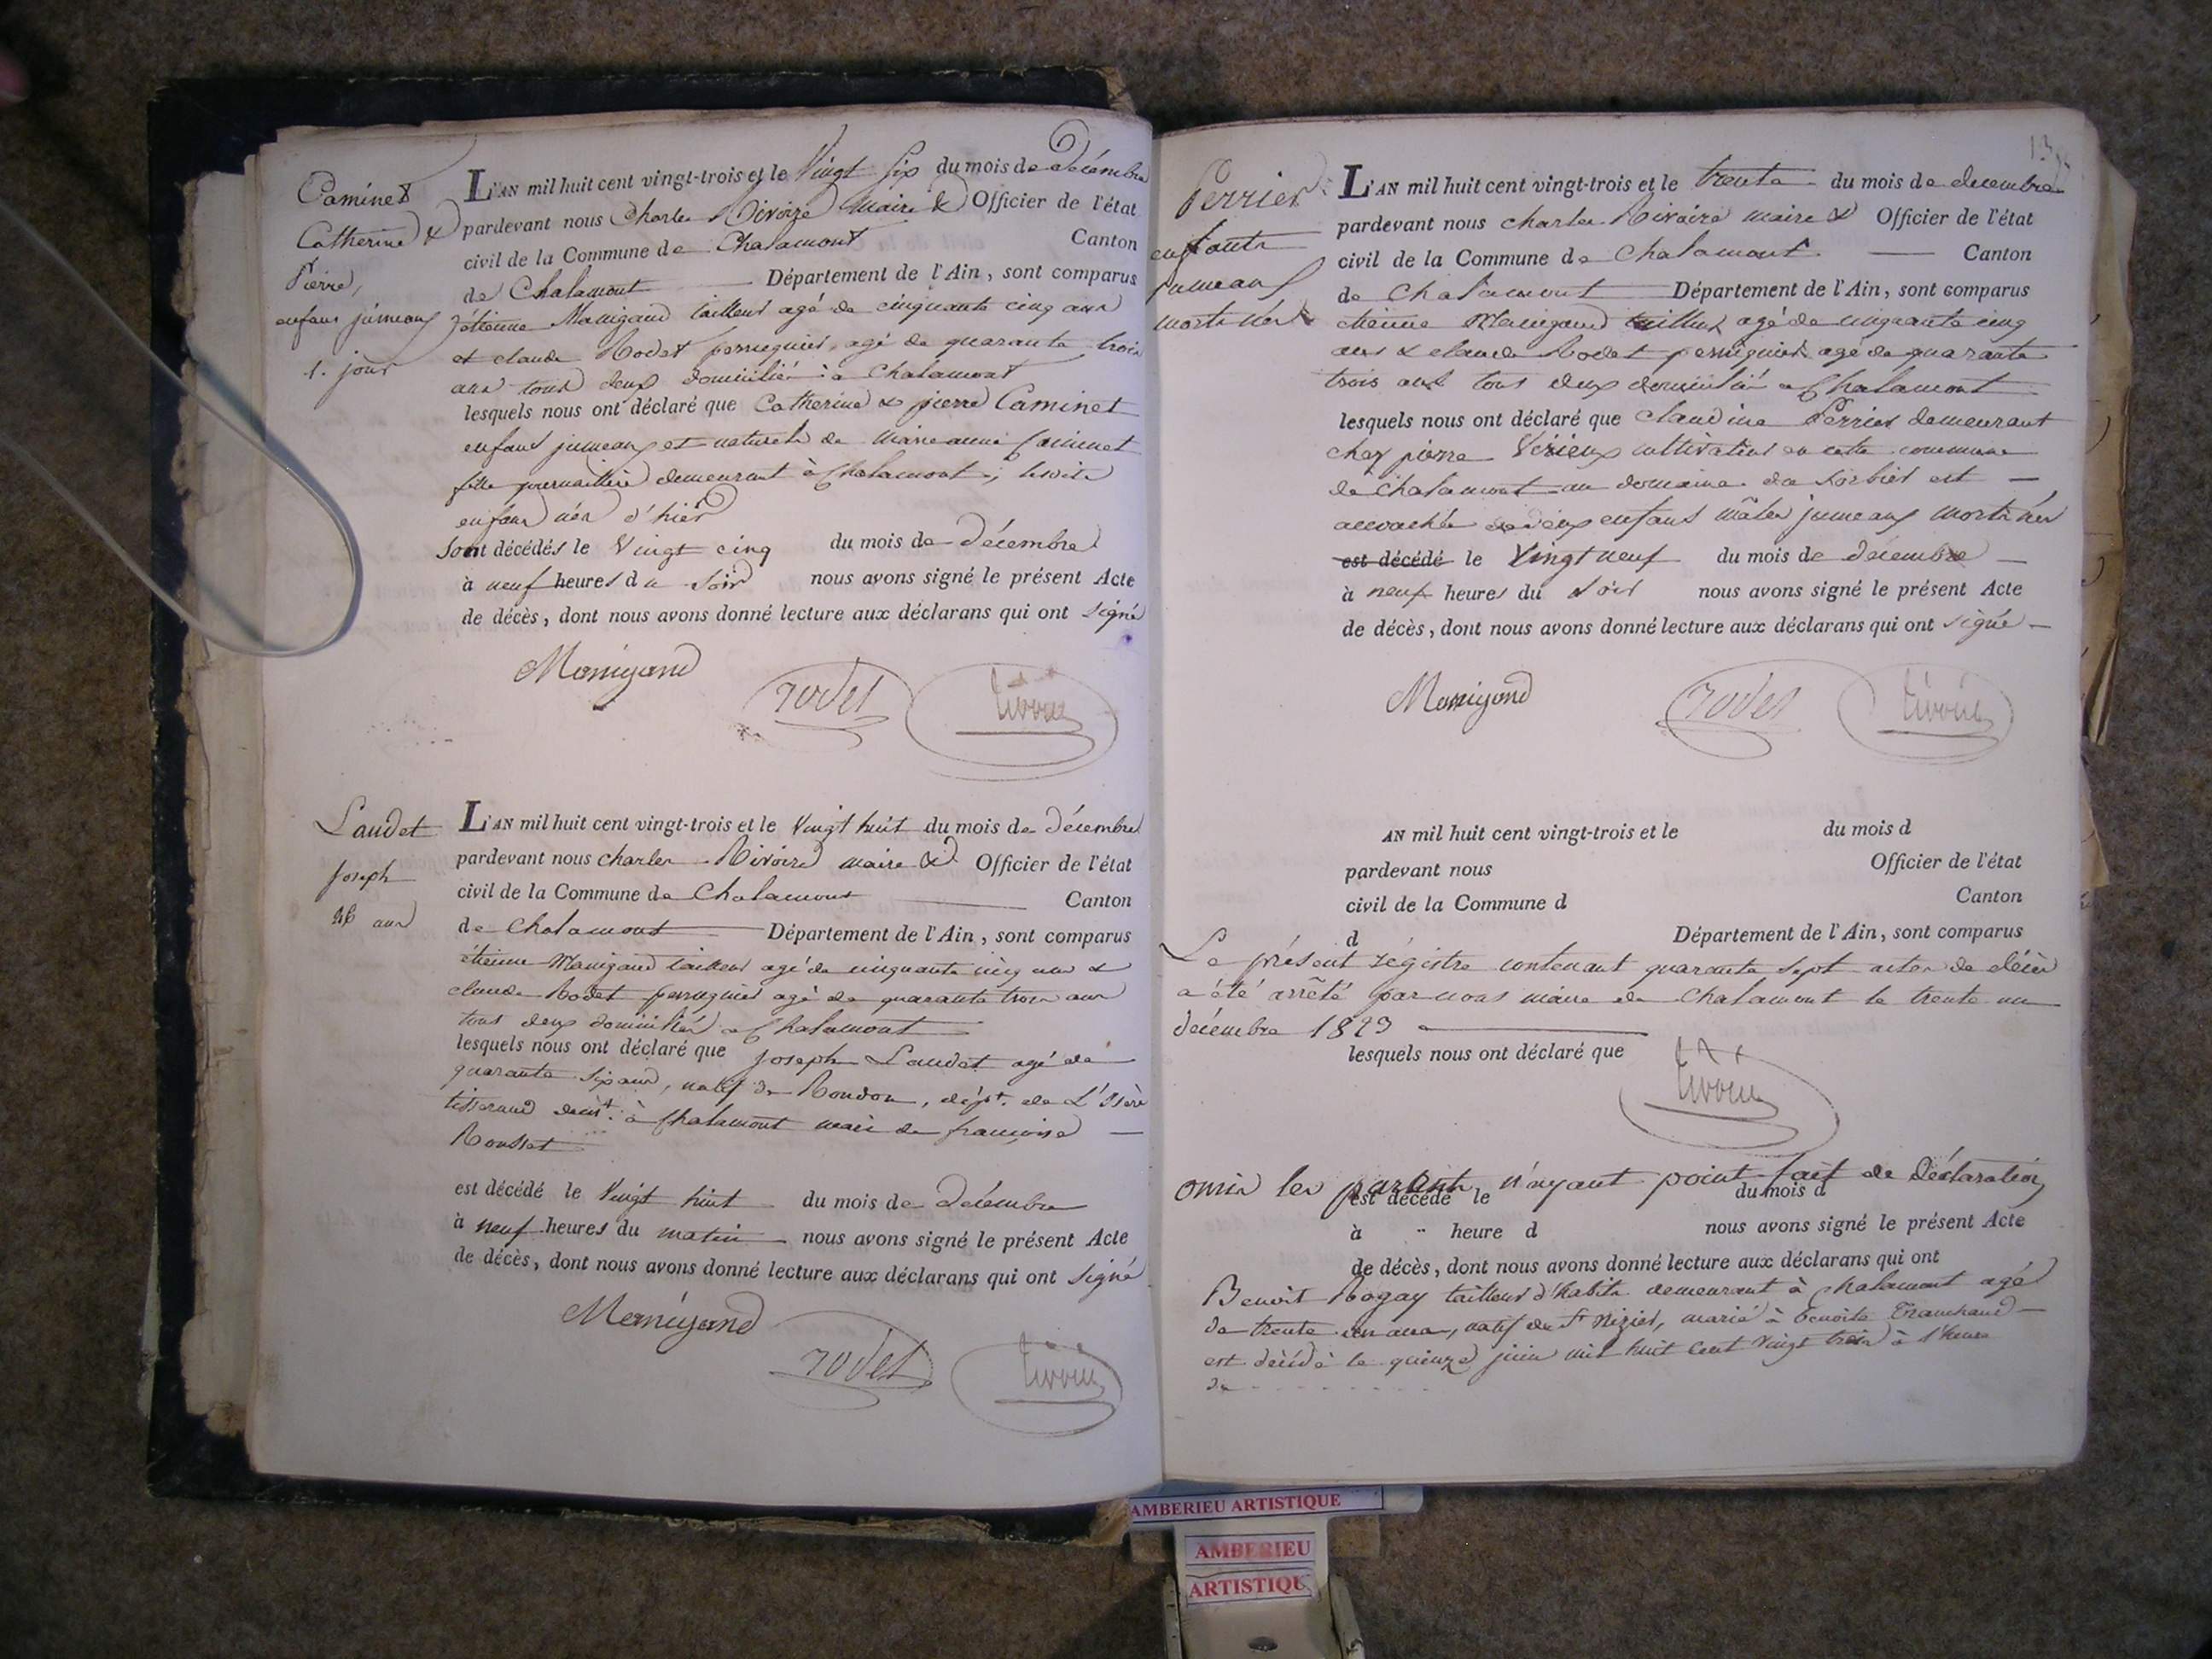 Caminet
Catherine &
Pierre,
enfans jumeaux
1. jour
L'AN mil huit cent vingt-trois et le Vingt six du mois de décembre
pardevant nous Charles Rivoire maire & Officier de l'état
civil de la Commune de Chalamont Canton
de Chalamont Département de l'Ain, sont comparus
étienne Manigand tailleur agé de cinquante cinq ans
et claude Rodet perruquier, agé de quarante trois
ans tous deux domiciliés à Chalamont
lesquels nous ont déclaré que Catherine & pierre Caminet
enfans jumeaux et naturels de marieanne Caminet
fille journaillère demeurant à Chalamont; lesdits
enfans nés d'hier
sont décédés le Vingt cinq du mois de Décembre
à neuf heures du soir nous avons signé le présent Acte
de décès, dont nous avons donné lecture aux déclarans qui ont signé
Manigand rodet rivoire
Laudet
Joseph
46 ans
L'AN mil huit cent vingt-trois et le Vingt huit du mois de Décembre
pardevant nous charles Rivoire maire & Officier de l'état
civil de la Commune de Chalamont Canton
de Chalamont Département de l'Ain, sont comparus
étienne Manigand tailleur agé de cinquante cinq ans &
claude Rodet perruquier agé de quarante trois ans
tous deux domiciliés a Chalamont
lesquels nous ont déclaré que Joseph Laudet agé de
quarante six ans, natif de Roudon, dépt. de L'Isère
tisserand demt. à Chalamont mari de françoise
Rousset
est décédé le Vingt huit du mois de Décembre
à neuf heures du matin nous avons signé le présent Acte
de décès, dont nous avons donné lecture aux déclarans qui ont signé
Manigand rodet rivoire
Perrier
enfants
jumeaux
morts nés
L'AN mil huit cent vingt-trois et le trente du mois de decembre
pardevant nous charles Rivoire maire & Officier de l'état
civil de la Commune de Chalamont Canton
de Chalamont Département de l'Ain, sont comparus
etienne Manigand tailleur agé de cinquante cinq
ans & claude Rodet perruquier agé de quarante
trois ans tous deux domiciliés a Chalamont
lesquels nous ont déclaré que claudine Perrier demeurant
chez pierre Vérieux cultivateur en cette commune
de Chalamont au domaine du Sorbier est
accouchée de deux enfans mâles jumeaux morts nés
est décédé le Vingt neuf du mois de décembre
à neuf heures du soir nous avons signé le présent Acte
de décès, dont nous avons donné lecture aux déclarans qui ont signé
Manigand rodet rivoire
AN mil huit cent vingt-trois et le du mois d
pardevant nous Officier de l'état
civil de la Commune d Canton
d Département de l'Ain, sont comparus
Le présent régistre contenant quarante sept actes de décès
a été arrêté par nous maire de Chalamont le trente un
décembre 1823
lesquels nous ont déclaré que
rivoire
omis les parents n'ayant point fait de Déclaration
est décédé le du mois d
à heure d nous avons signé le présent Acte
de décès, dont nous avons donné lecture aux déclarans qui ont
Benoit Rogay tailleur d'habits demeurant à Chalamont agé
de trente un ans, natif de St Nizier, marié à benoite Tranchand
est décédé le quinze juin mil huit cent vingt trois à l'heure
de
AMBERIEU ARTISTIQUE
AMBERIEU
ARTISTIQU